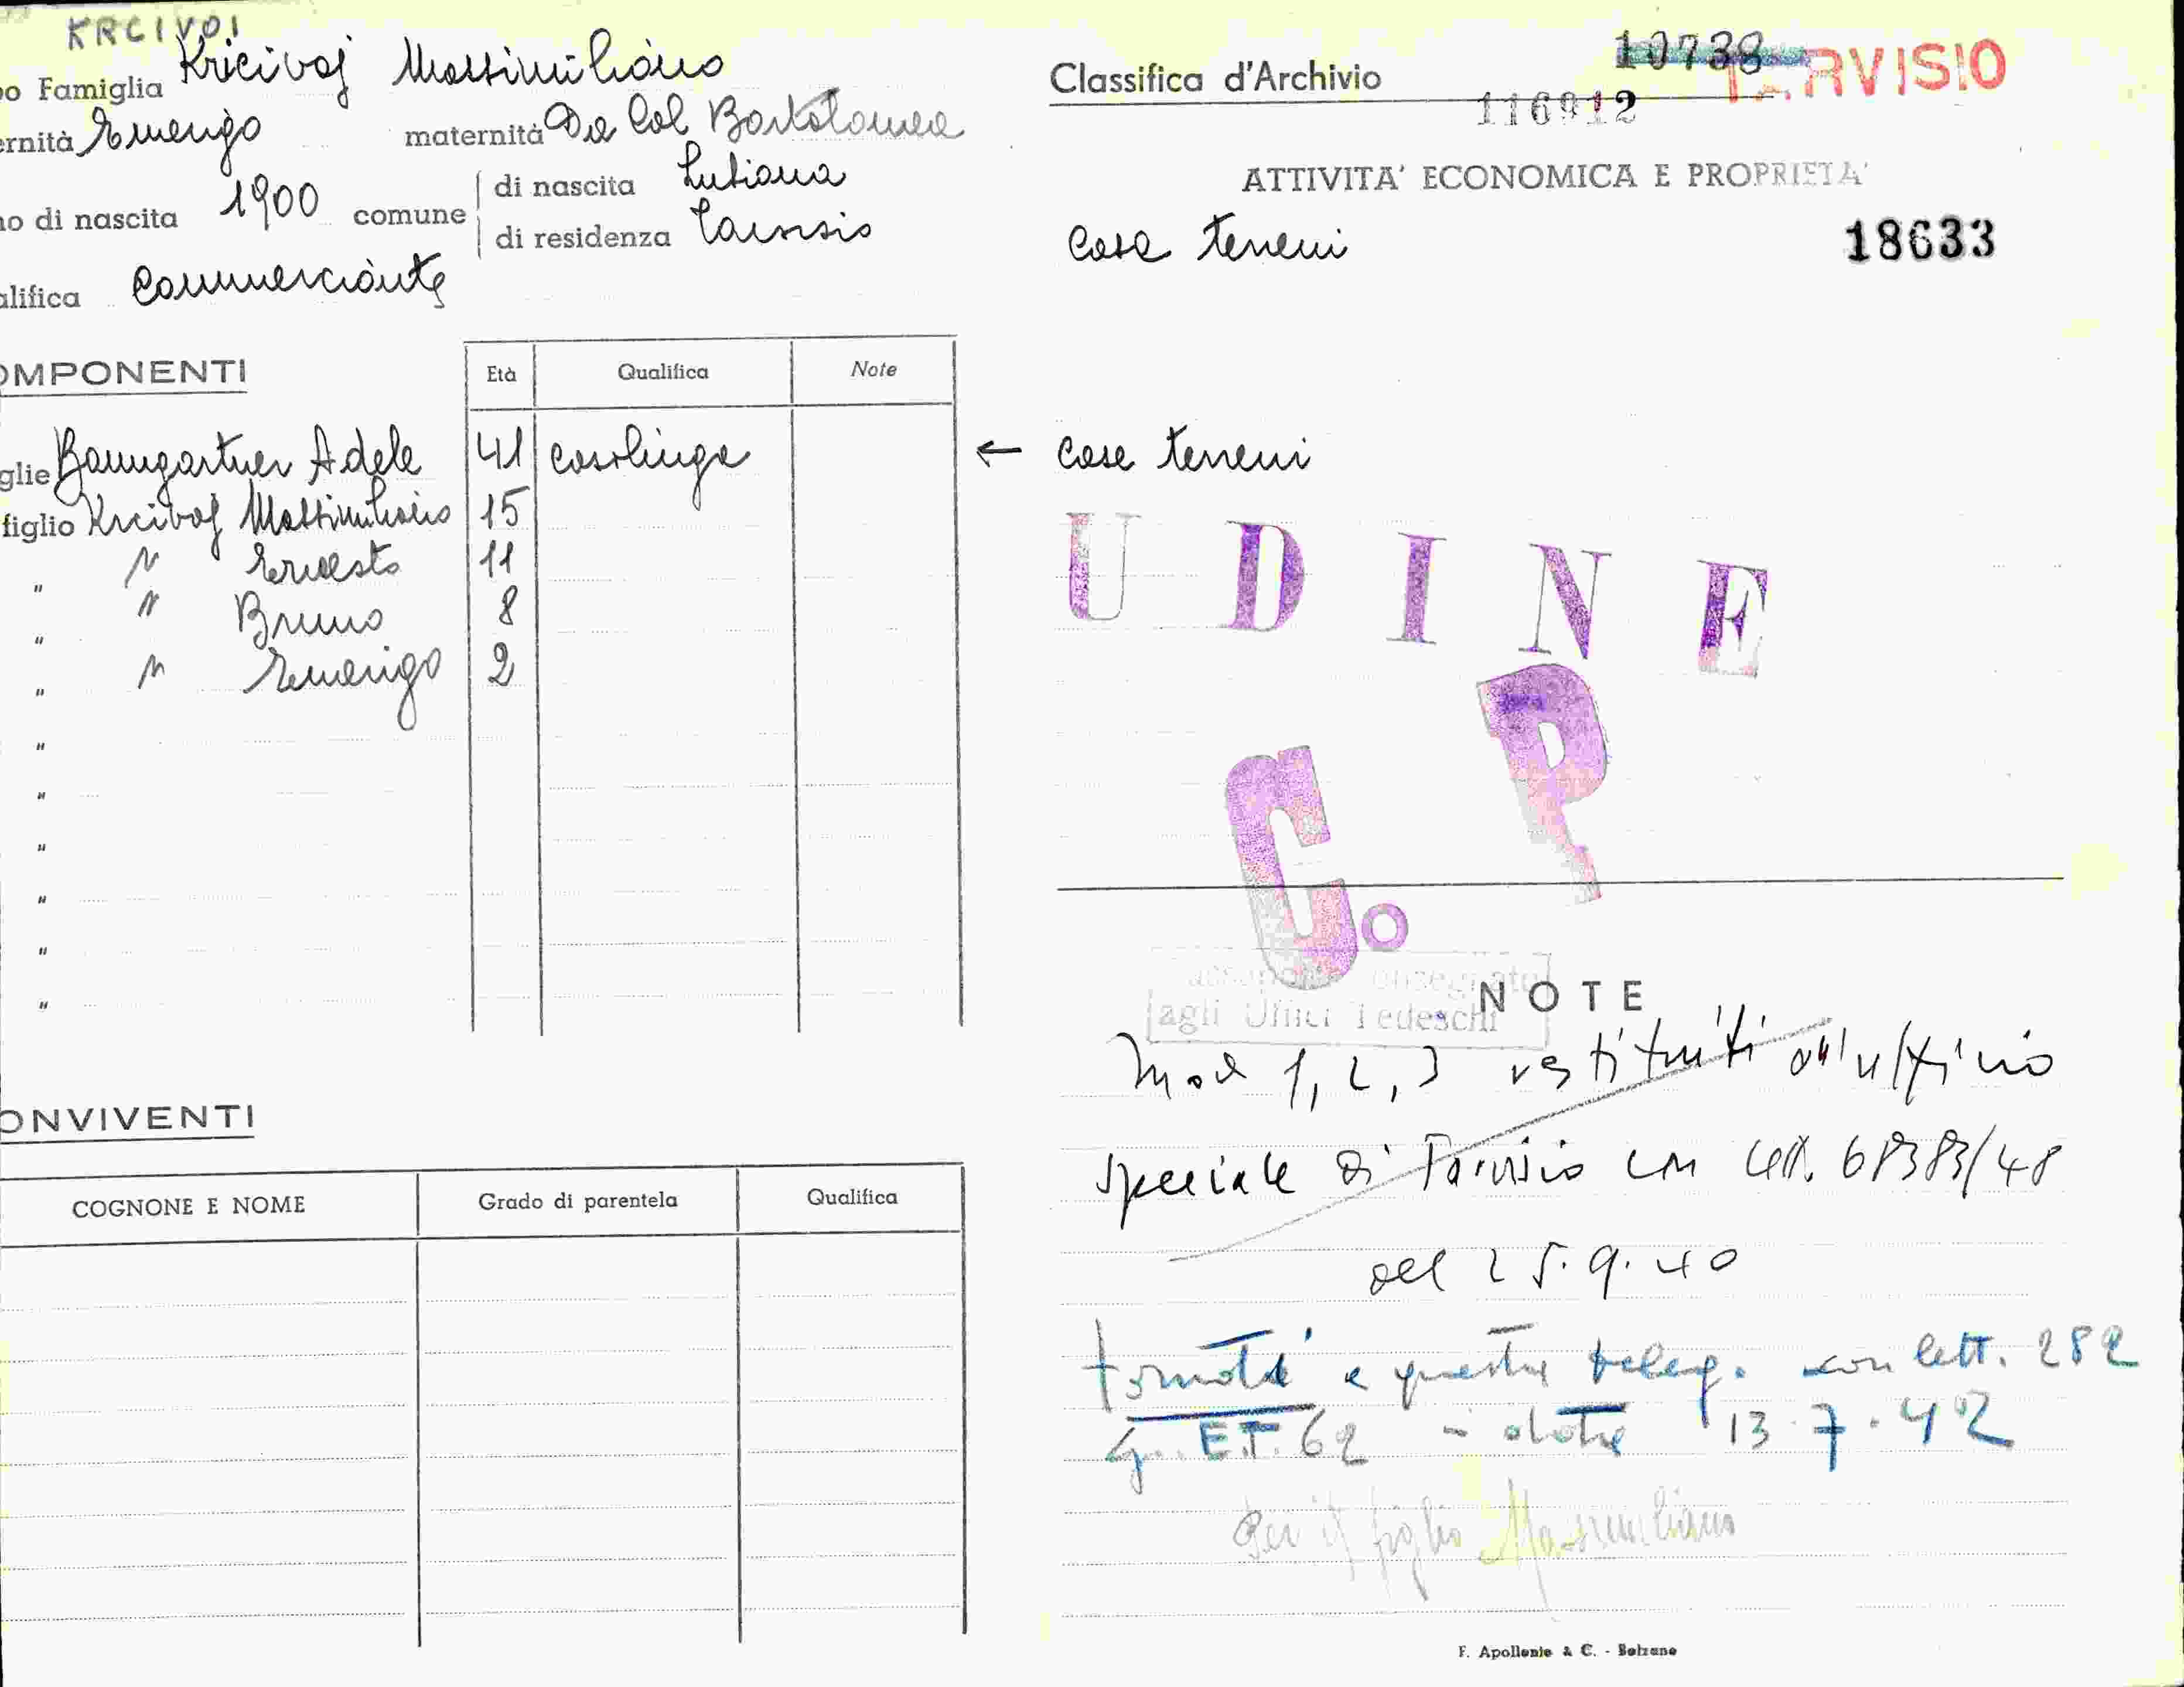 KRCIVOI
o Famiglia Kricivoj Massimiliano
ernità Emerigo maternità Da Col Bortolomea
o di nascita 1900 comune di nascita Lubiana
di residenza Tarvisio
alifica Commerciante
OMPONENTI Età Qualifica Note
glie Baumgartner Adele 41 casalinga
figlio Krcivoj Massimiliano 15
" " Ernesto 11
" " Bruno 8
" " Emerigo 2
"
"
"
"
"
"
ONVIVENTI
COGNONE E NOME Grado di parentela Qualifica
Classifica d'Archivio 10738 TARVISIO
116912
ATTIVITA' ECONOMICA E PROPRIETA'
Case terreni 18633
← Case terreni
UDINE
C. P
consegnato
agli Uffici Tedeschi
NOTE
Mod 1, 2, 3 restituiti all'ufficio
speciale di Tarvisio con lett. 68383/48
del 25.9.40
tornati a questa deleg. con lett. 282
E.T. 62 - data 13.7.42
Per il figlio Massimiliano
F. Apollonio & C. - Bolzano